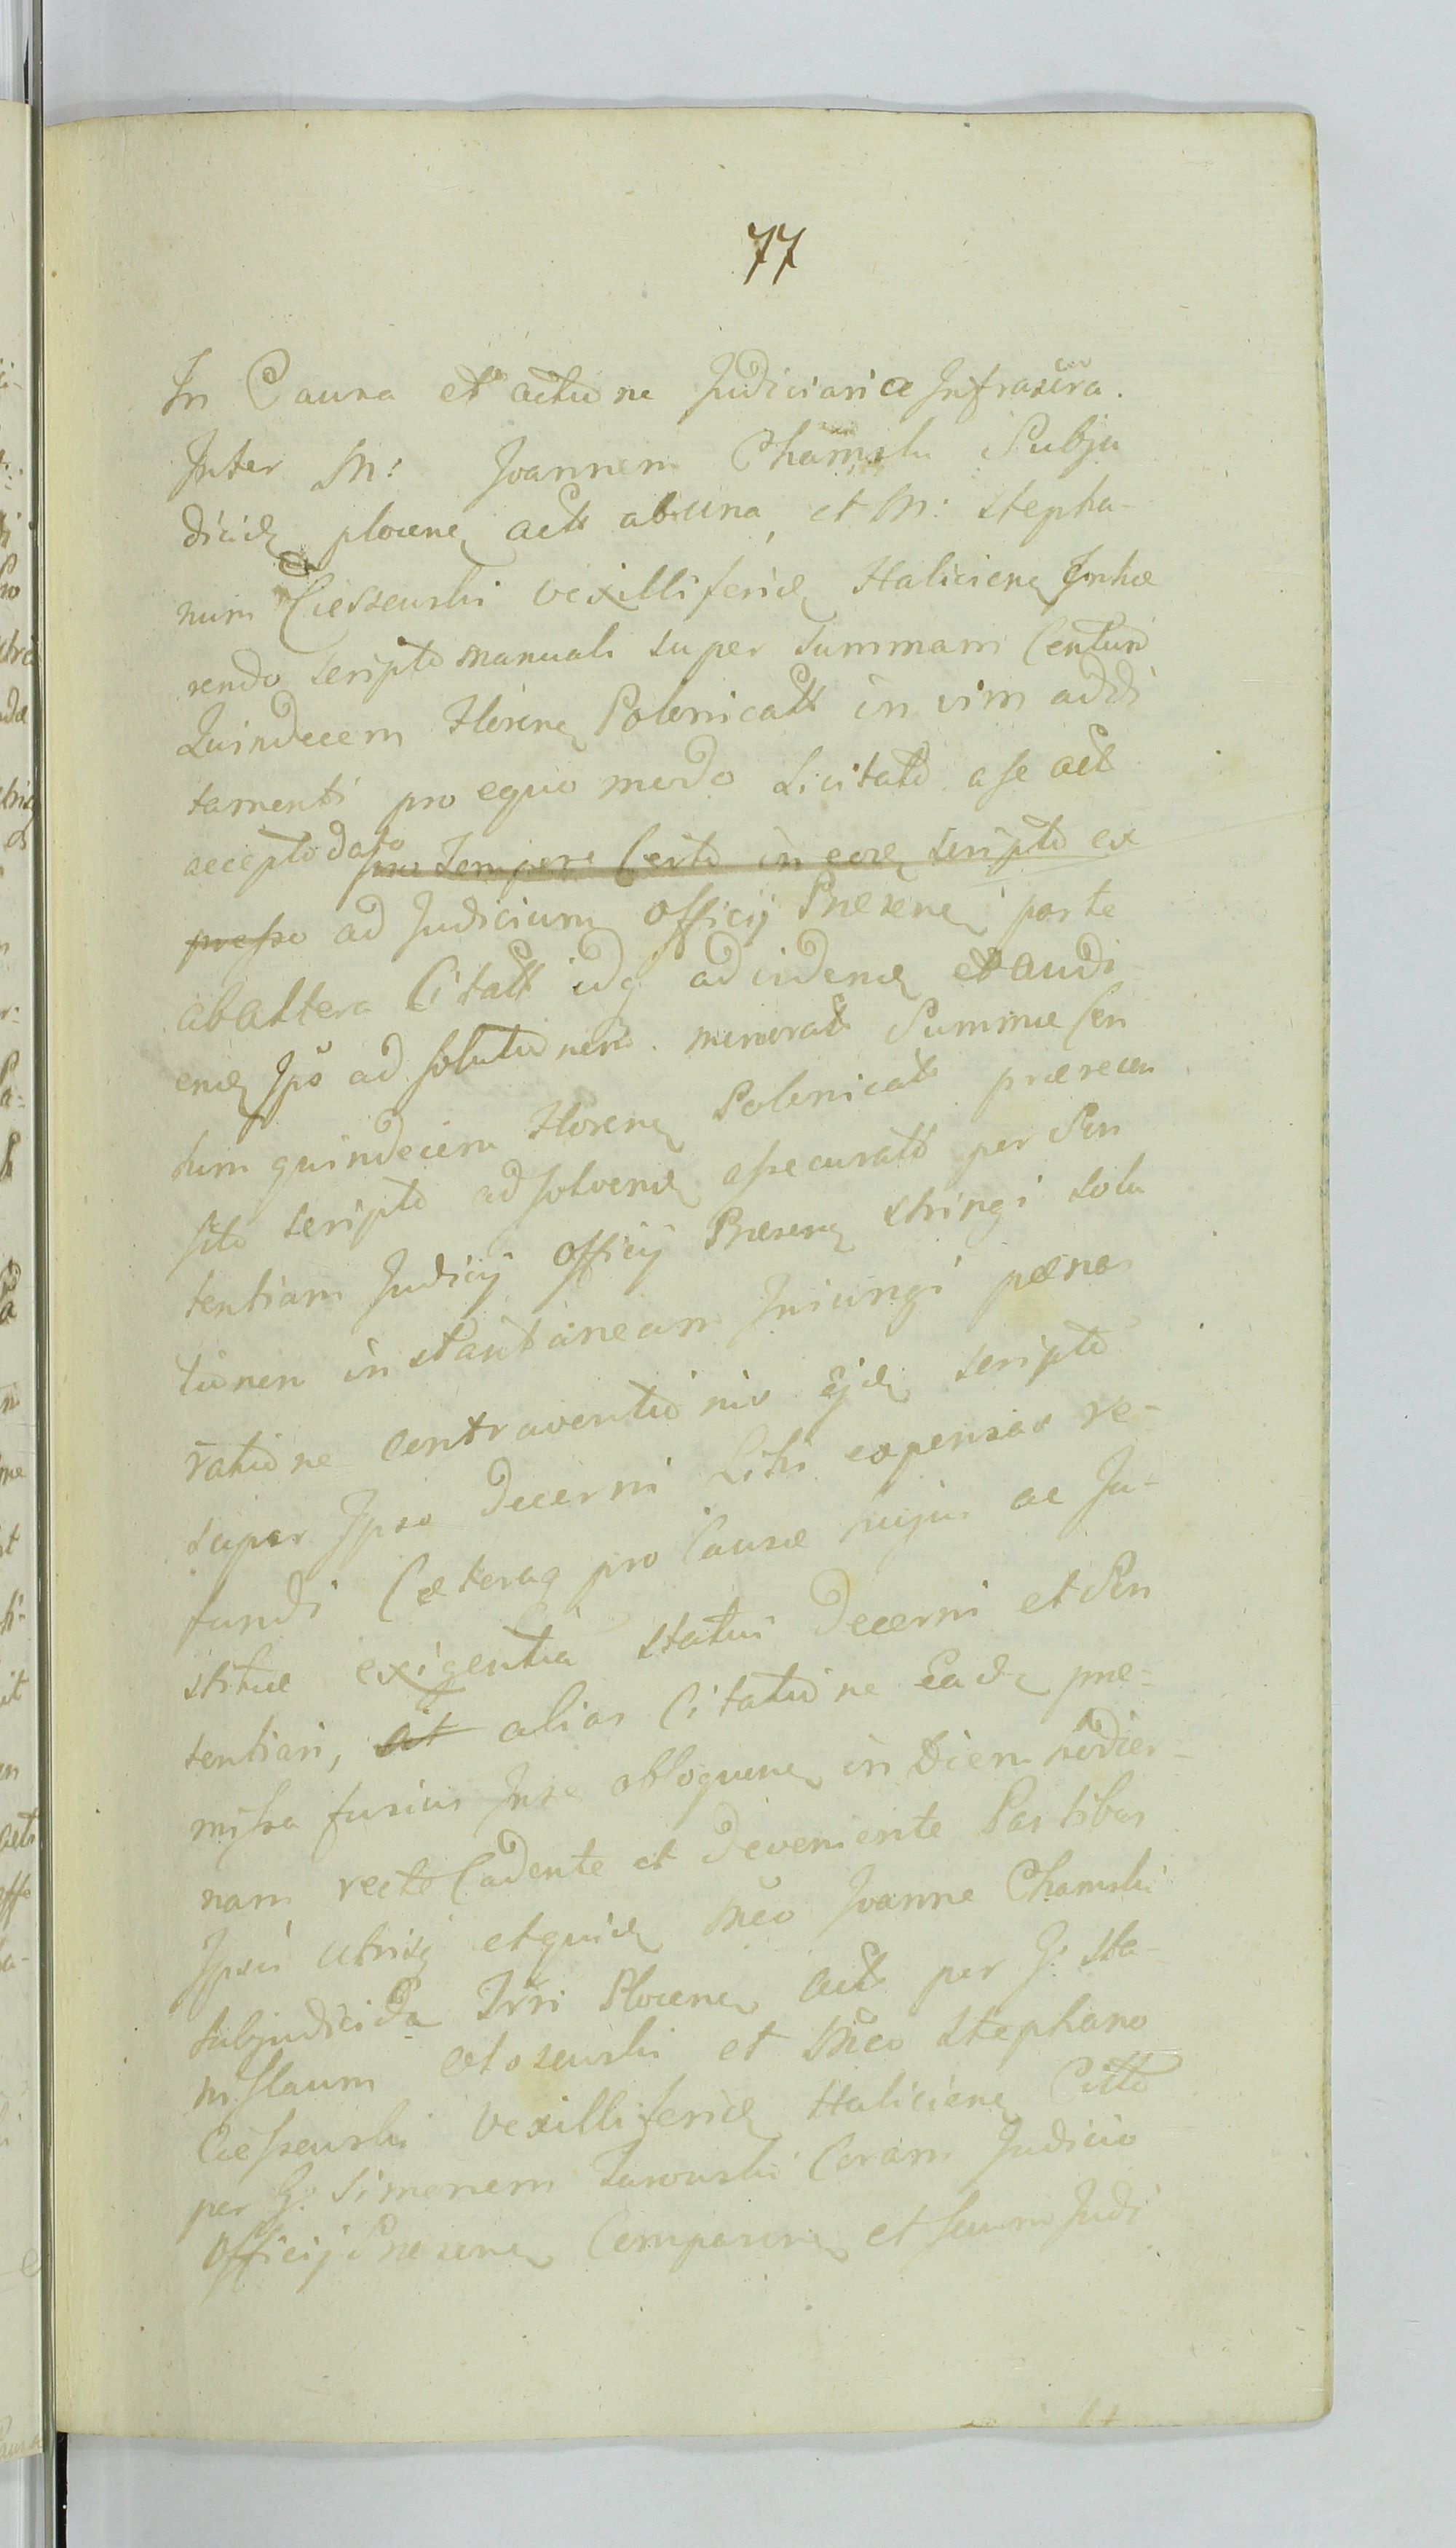 77
In Causa et actione Judiciaria Infrascra.
Inter M: Joannem Chamski Subju
dicid plocen act ab una, et M: Stepha-
num Cieszewski vexillifericd Halicien Inhæ
rendo scripto manuali super summam Centum
Quindecem Floren Polonicalt in vim addi
tamenti pro equo modo Licitato a se act
accepto dato pro tempore certo in eod scripto ex
presso ad Judicium officij Præsen parte
ab altera Citatt idq ad videnđ et audi
end Ipō ad solutionem memorat Summæ Cen
tum quindecim Floren Polonicat præreceń
sito scripto ad solvend assecurato per Sen
tentiam Judicij officij Præsen stringi solu
tionem instantaneam Iniungi pœnas
ratione contraventionis Ejd scripto
super Ipso decerni Litis expensas re-
fundi Cæteraq pro Causæ hujus ac Ju-
stitiæ exigentia statui decerni et Sen
tentiari, at alias Citatione Ead præ-
missa fusius In se obloquen in Diem hodier-
nam recte Cadente et deveniente Partibus
Ipsis utrisq et quid Mco Joanne Chamski
subjudicida Trri Plocen act per G: Sta-
nislaum Otoszewski et Mco Stephano
Ciesszewski Vexillifericd Halicien Citto
per G: Simonem Zarowski Coram Judicio
Officij Præsen Comparen et suum Judi